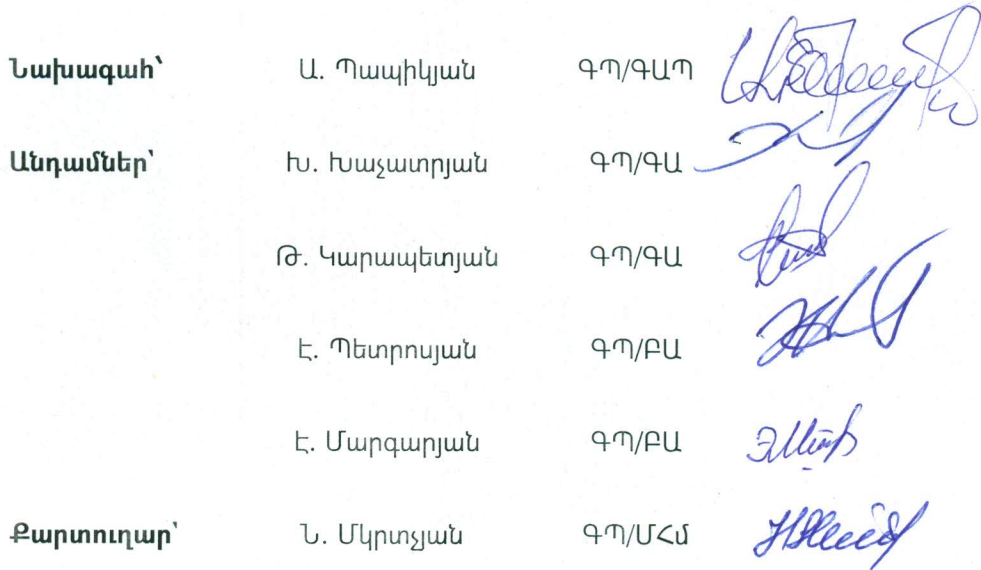 Նախագահ՝ Ա. Պապիկյան ԳՊ/ԳԱՊ
Անդամներ՝ Խ. Խաչատրյան ԳՊ/ԳԱ
Թ. Կարապետյան ԳՊ/ԳԱ
Է. Պետրոսյան ԳՊ/ԲԱ
Է. Մարգարյան ԳՊ/ԲԱ
Քարտուղար՝ Ն. Մկրտչյան ԳՊ/ՄՀմ